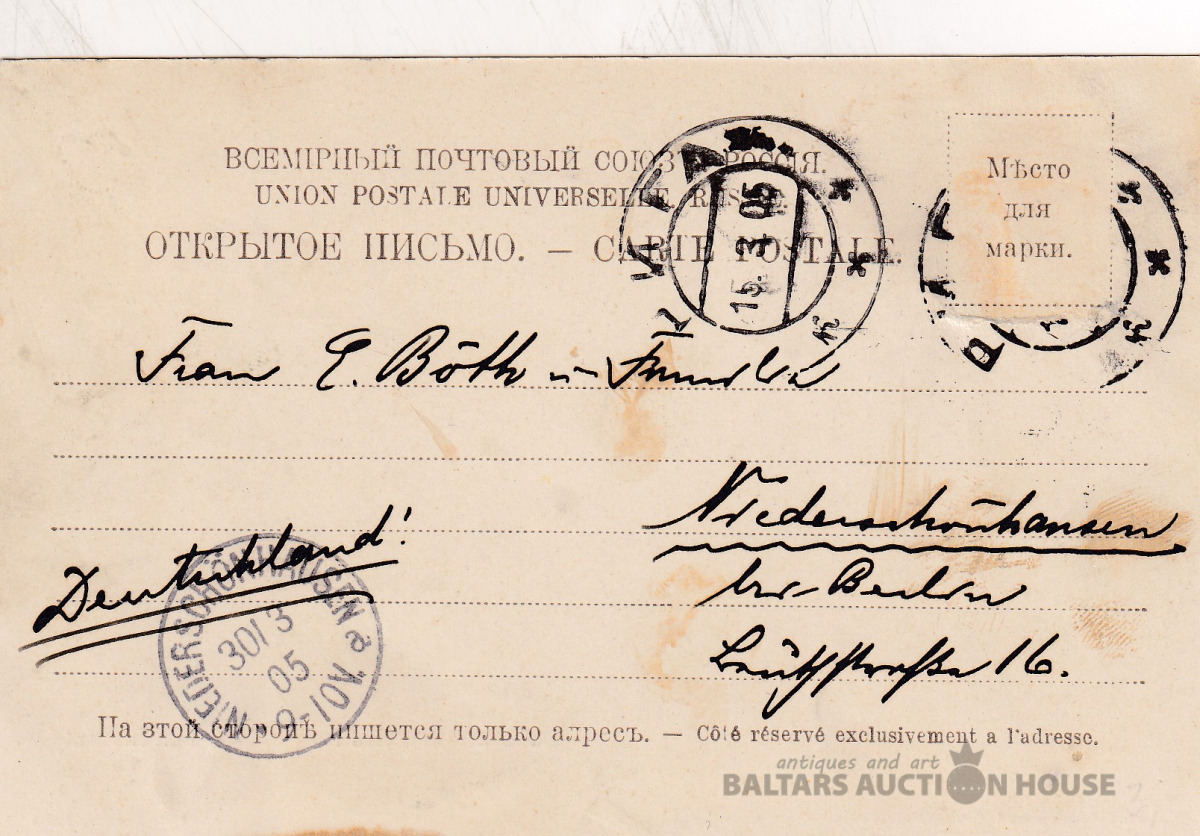 ВСЕМІРНЫЙ ПОЧТОВЫЙ СОЮЗЪ. РОССІЯ.
UNION POSTALE UNIVERSELLE. RUSSIE.
ОТКРЫТОЕ ПИСЬМО. — CARTE POSTALE.
Мѣсто
для
марки.
РИГА
15.3.05
Frau E. Böth u Familie
Niederschönhausen
bei Berlin
16.
Deutschland!
NIEDERSCHÖNHAUSEN a
30/3
05
9-10V.
На этой сторонѣ пишется только адресъ. — Côté réservé exclusivement a l'adresse.
antiques and art
BALTARS AUCTION HOUSE